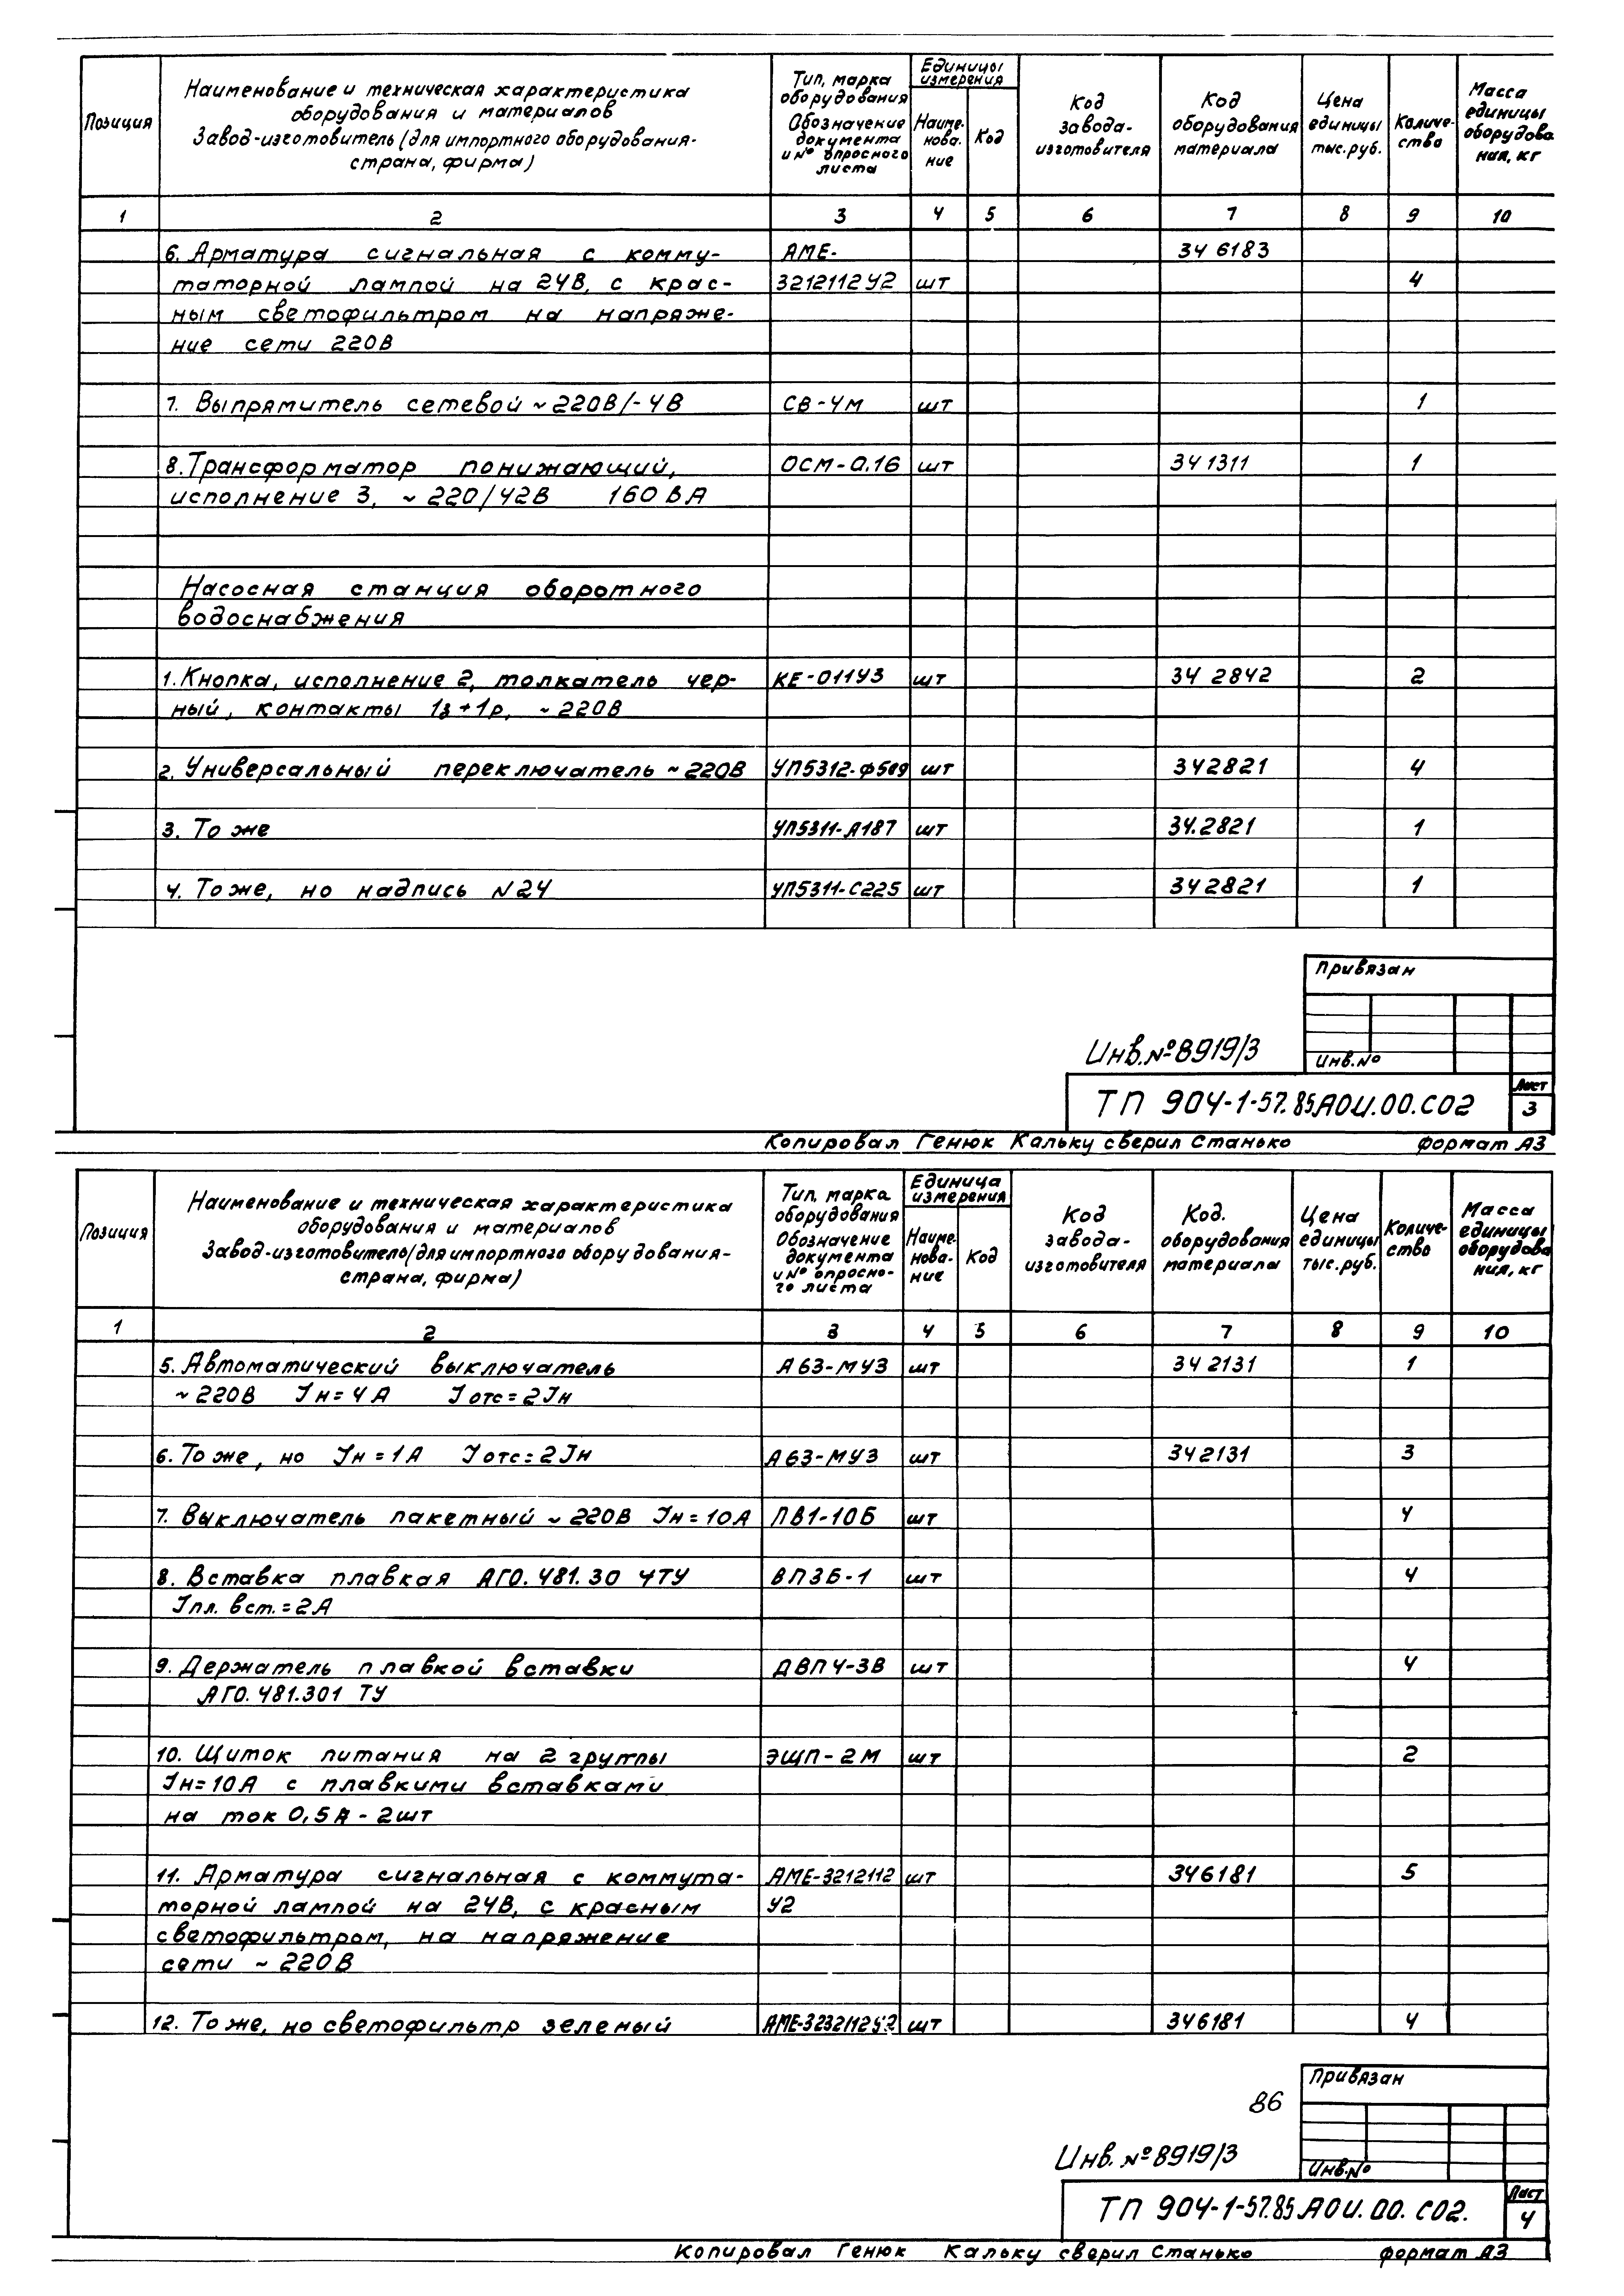 Позиция
Наименование и техническая характеристика
оборудования и материалов
Завод-изготовитель (для импортного оборудования-
страна, фирма)
Тип, марка
оборудования
Обозначение
документа
и № опросного
листа
Единицы
измерения
Наиме-
нова-
ние
Код
Код
завода-
изготовителя
Код
оборудования
материала
Цена
единицы
тыс.руб.
Количе-
ство
Масса
единицы
оборудова
ния, кг
1 2 3 4 5 6 7 8 9 10
6. Арматура сигнальная с комму- АМЕ- 34 6183
таторной лампой на 24В, с крас- 3212112У2 шт 4
ным светофильтром на напряже-
ние сети 220В
7. Выпрямитель сетевой ~220В/-4В СВ-4М шт 1
8. Трансформатор понижающий, ОСМ-0.16 шт 341311 1
исполнение 3, ~220/42В 160ВА
Насосная станция оборотного
водоснабжения
1. Кнопка, исполнение 2, толкатель чер- КЕ-011У3 шт 34 2842 2
ный, контакты 1з+1р, ~220В
2. Универсальный переключатель ~220В УП5312-Ф509 шт 342821 4
3. То же УП5311-А187 шт 34.2821 1
4. То же, но надпись N24 УП5311-С225 шт 342821 1
Привязан
Инв.№
Инв.№8919/3
ТП 904-1-57.85АОИ.00.СО2
Лист
3
Копировал Генюк Кальку сверил Станько формат А3
Позиция
Наименование и техническая характеристика
оборудования и материалов
Завод-изготовитель (для импортного оборудования-
страна, фирма)
Тип, марка
оборудования
Обозначение
документа
и № опросно-
го листа
Единица
измерения
Наиме-
нова-
ние
Код
Код
завода-
изготовителя
Код.
оборудования
материала
Цена
единицы
тыс.руб.
Количе-
ство
Масса
единицы
оборудова
ния, кг
1 2 3 4 5 6 7 8 9 10
5. Автоматический выключатель А63-МУ3 шт 342131 1
~220В Iн=4А Iотс=2Iн
6. То же, но Iн=1А Iотс=2Iн А63-МУ3 шт 342131 3
7. Выключатель пакетный ~220В Iн=10А ПВ1-10Б шт 4
8. Вставка плавкая АГО.481.30 4ТУ ВП3Б-1 шт 4
Iпл. вст.=2А
9. Держатель плавкой вставки ДВП4-3В шт 4
АГО.481.301 ТУ
10. Щиток питания на 2 группы ЭЩП-2М шт 2
Iн=10А с плавкими вставками
на ток 0,5А-2шт
11. Арматура сигнальная с коммута- АМЕ-3212112 шт 346181 5
торной лампой на 24В, с красным У2
светофильтром, на напряжение
сети ~220В
12. То же, но светофильтр зеленый АМЕ-3232112У2 шт 346181 4
Привязан
Инв.№
86
Инв.№8919/3
ТП 904-1-57.85.АОИ.00.СО2.
Лист
4
Копировал Генюк Кальку сверил Станько формат А3